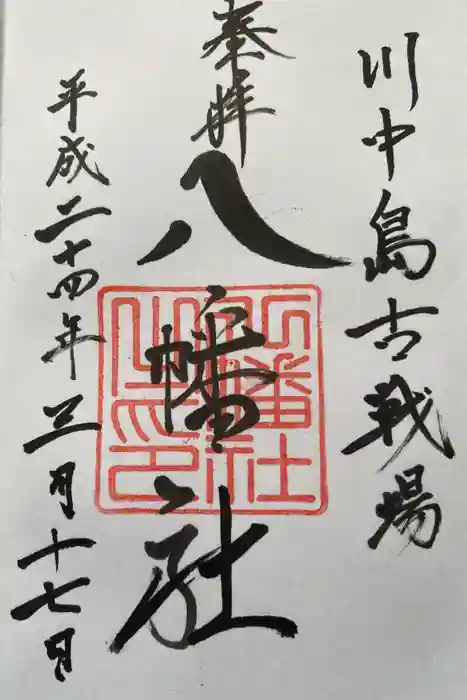 川中島古戦場
奉拝
八幡社
八幡社之印
平成二十四年三月十七日